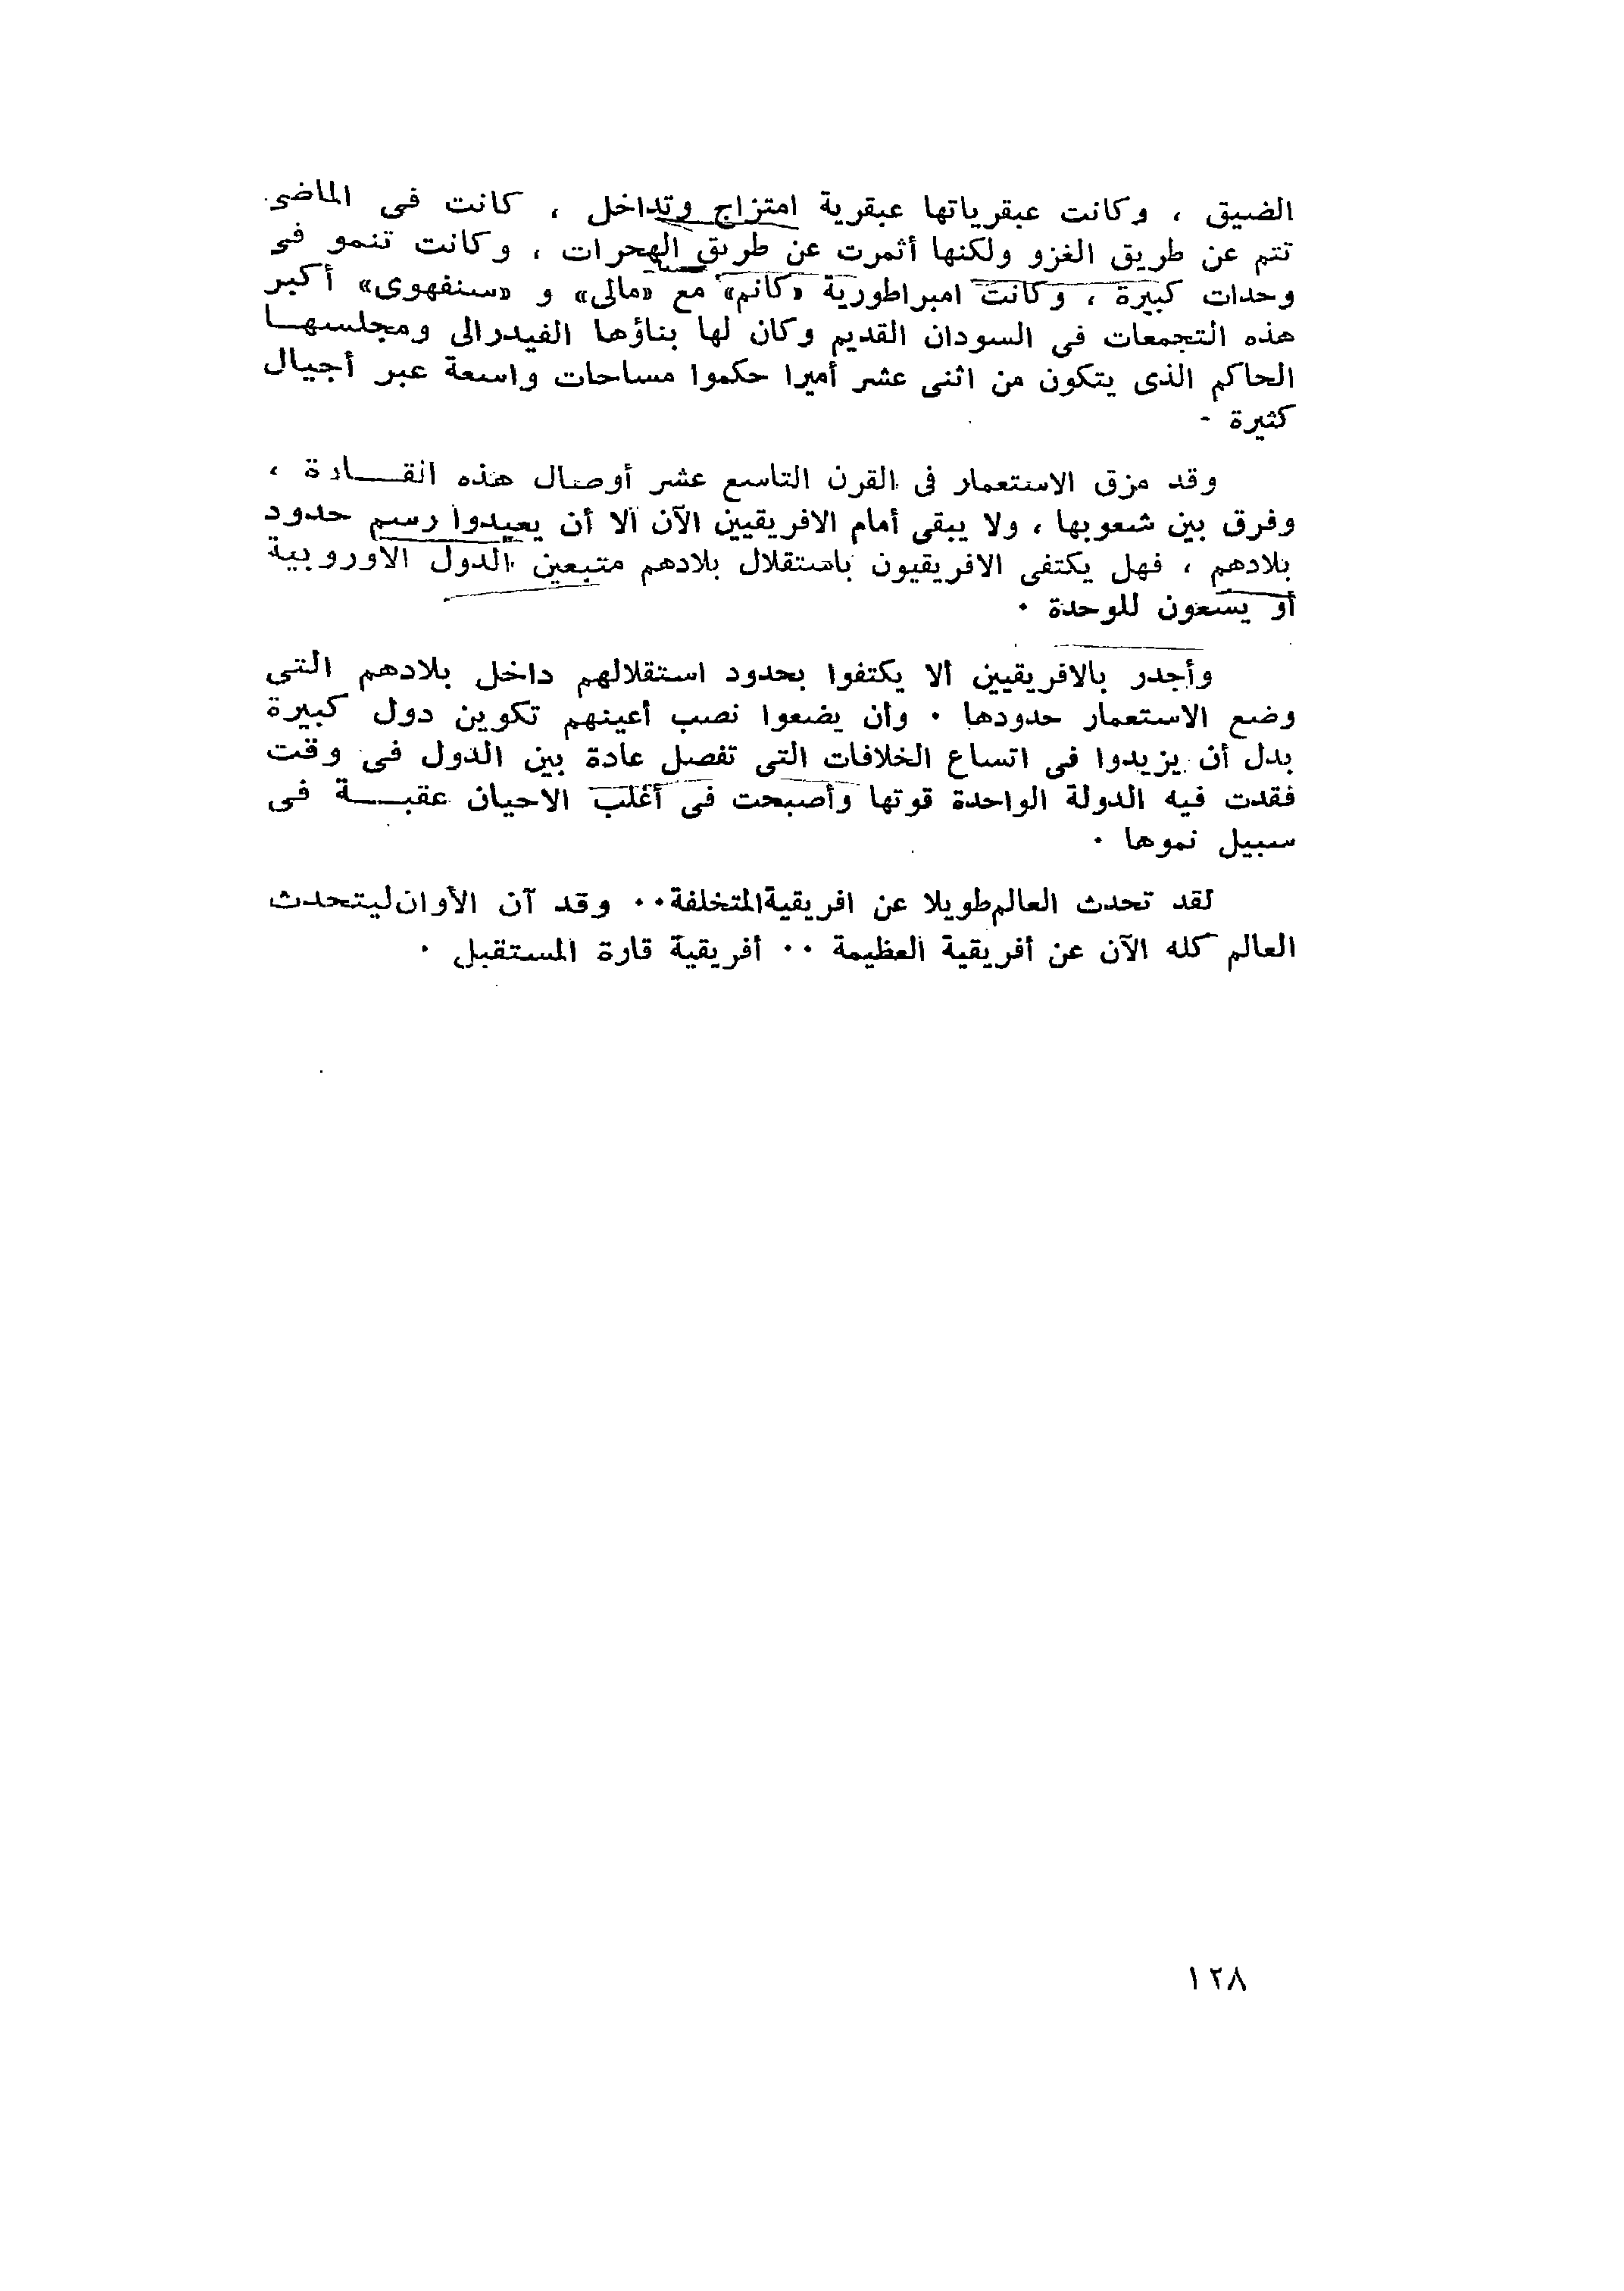 الضيق ، وكانت عبقرياتها عبقرية امتزاج وتداخل ، كانت فى الماضى
تتم عن طريق الغزو ولكنها أثمرت عن طريق الهجرات ، وكانت تنمو فى
وحدات كبيرة ، وكانت امبراطورية «كانم» مع «مالى» و «سنفهوى» أكبر
هذه التجمعات فى السودان القديم وكان لها بناؤها الفيدرالى ومجلسهـا
الحاكم الذى يتكون من اثنى عشر أميرا حكموا مساحات واسعة عبر أجيال
كثيرة -
وقد مزق الاستعمار فى القرن التاسع عشر أوصال هذه القـــارة ،
وفرق بين شعوبها ، ولا يبقى أمام الافريقيين الآن الا أن يعيدوا رسم حدود
بلادهم ، فهل يكتفى الافريقيون باستقلال بلادهم متبعين الدول الاوروبية
أو يسعون للوحدة ٠
وأجدر بالافريقيين ألا يكتفوا بحدود استقلالهم داخل بلادهم التى
وضع الاستعمار حدودها ٠ وأن يضعوا نصب أعينهم تكوين دول كبيرة
بدل أن يزيدوا فى اتساع الخلافات التى تفصل عادة بين الدول فى وقت
فقدت فيه الدولة الواحدة قوتها وأصبحت فى أغلب الاحيان عقبـــة فى
سبيل نموها ٠
لقد تحدث العالم طويلا عن افريقية المتخلفة ٠٠ وقد آن الأوان ليتحدث
العالم كله الآن عن أفريقية العظيمة ٠٠ أفريقية قارة المستقبل ٠
١٢٨